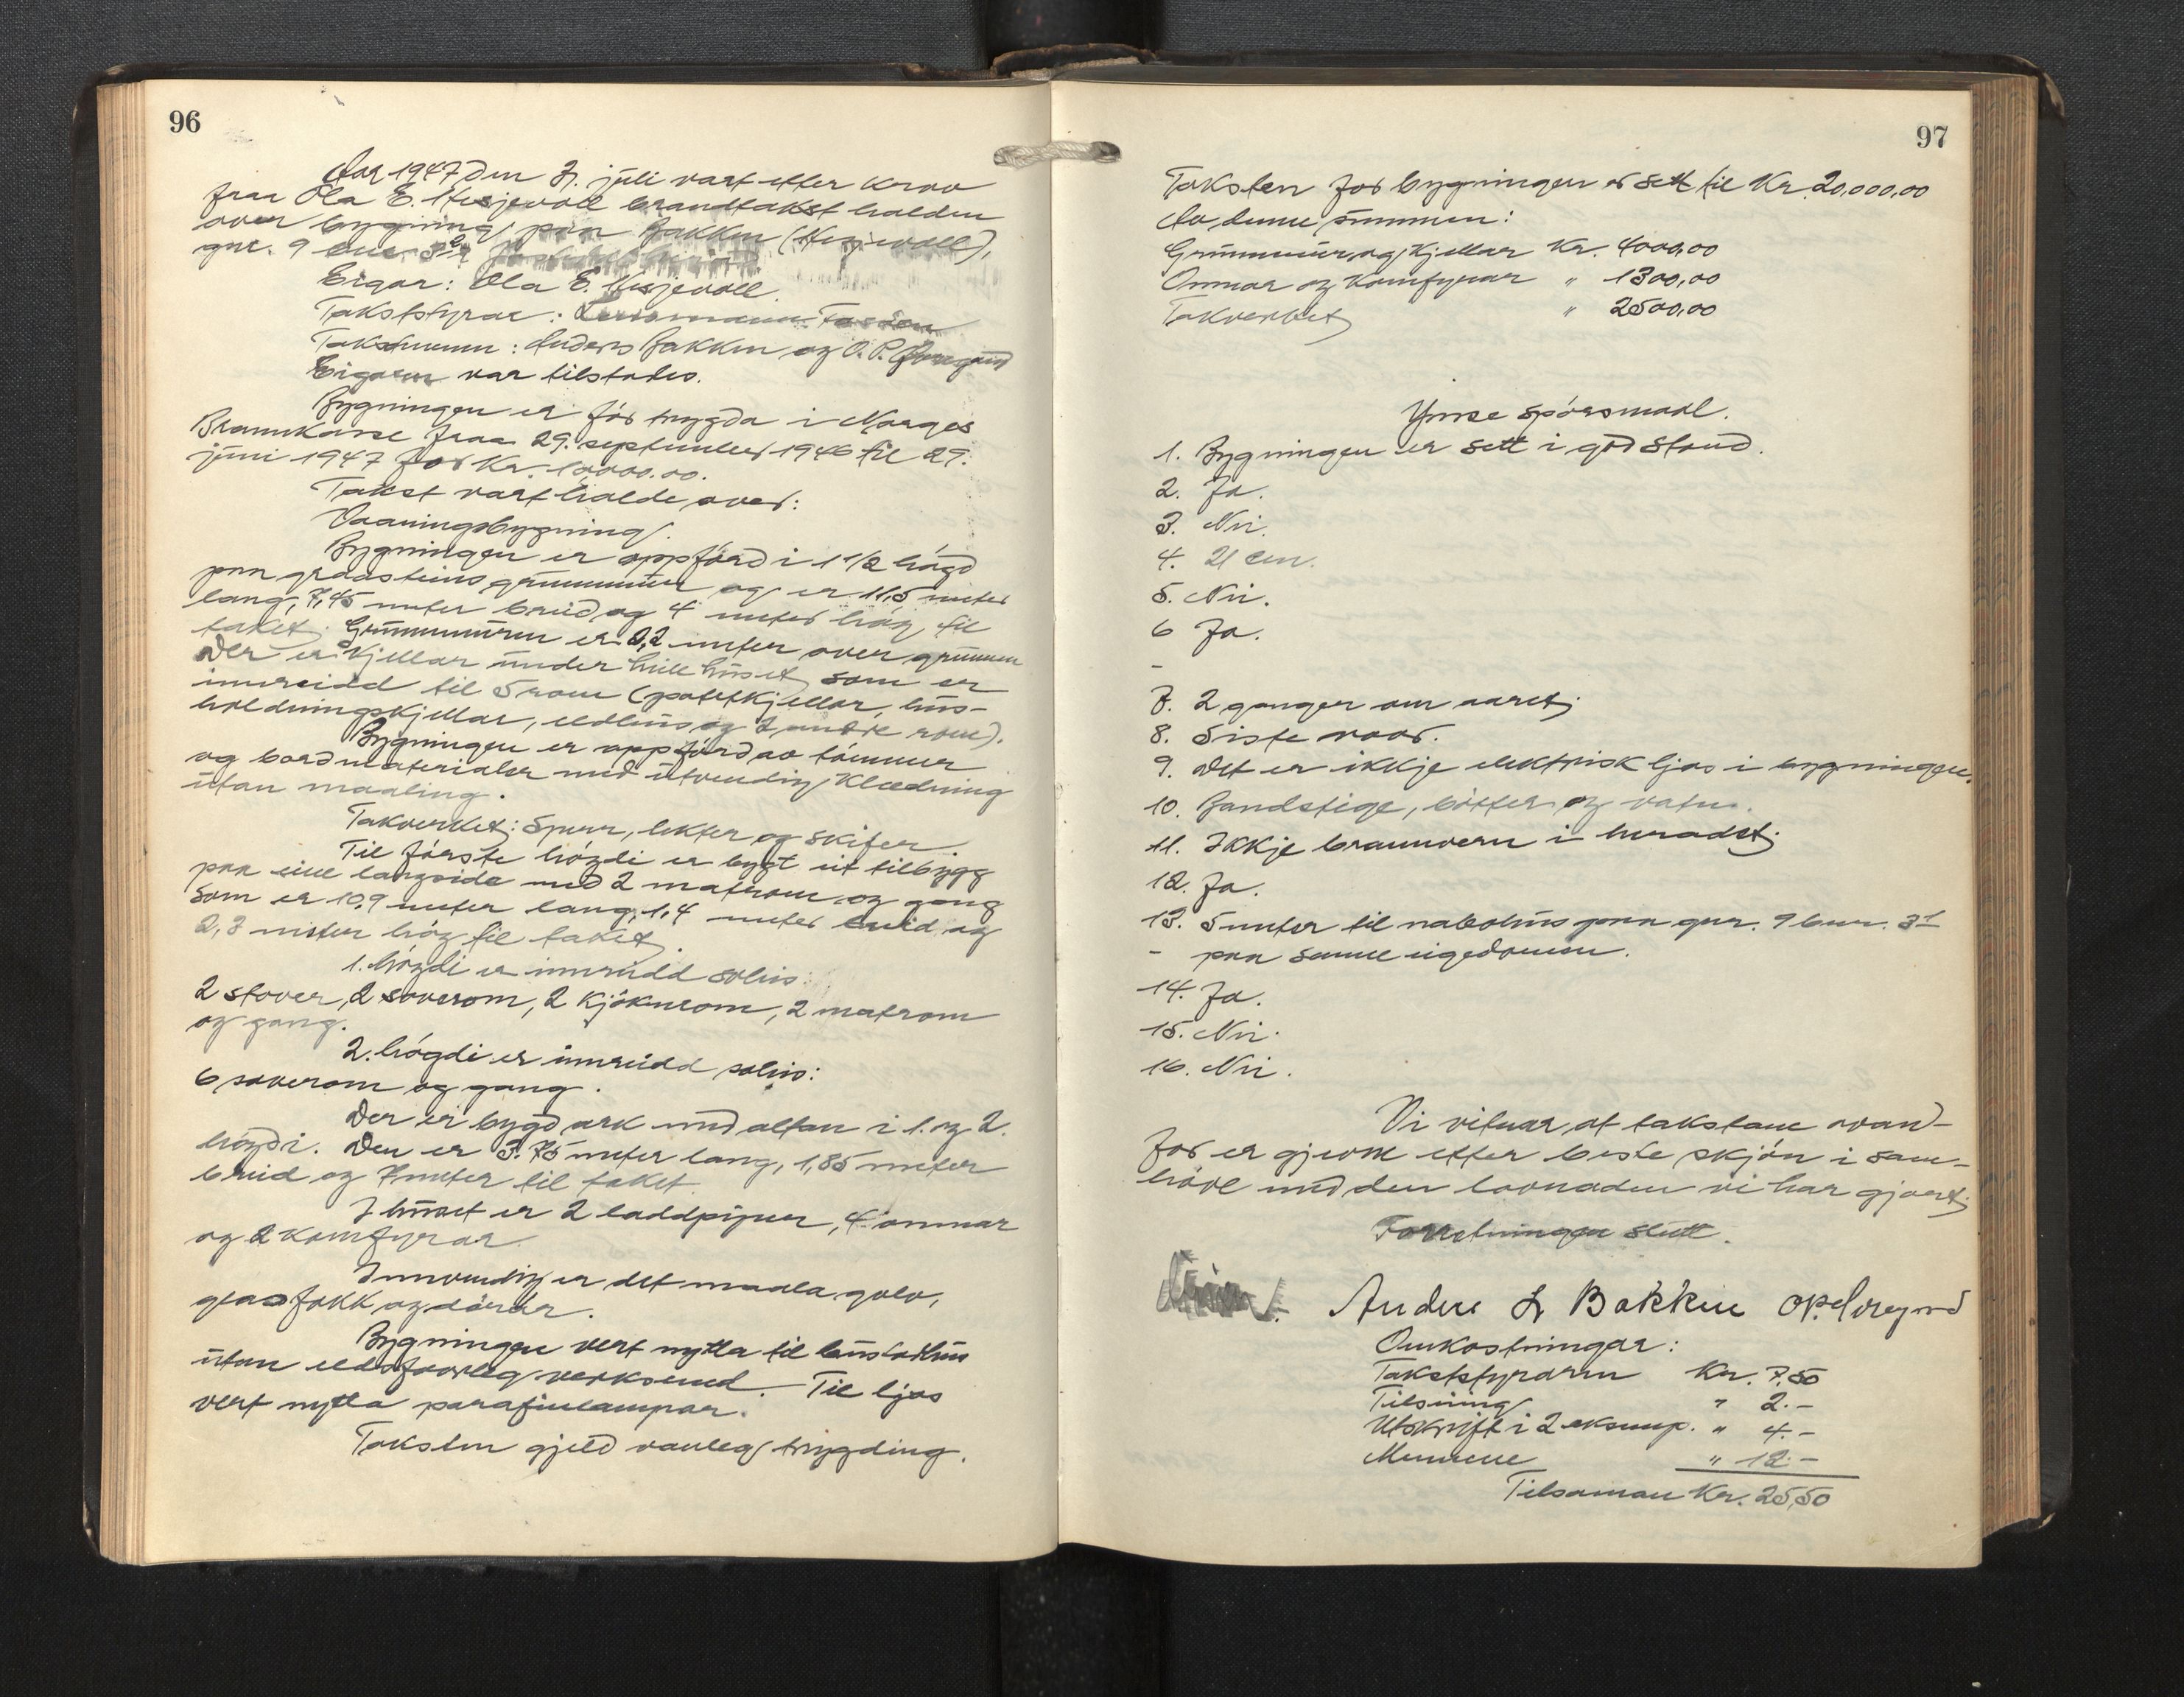 96
Aar 1947 den 7. juli vart etter krav
fraa Ola E. Hesjevoll brandtakst halden
over bygning paa Bakken (Hesjevoll),
gnr. 9 bnr.
Eigar: Ola E. Hesjevoll.
Takststyrar:
Takstmenn: Anders Bakken og O. P.
Eigaren var tilstades.
Bygningen er før trygda i Norges
Brannkasse fraa 29. september 1946 til 29.
juni 1947 for Kr. 10,000.00.
Takst vart halde over:
Vaaningsbygning.
Bygningen er oppførd i 1 1/2 høgd
paa graasteins grunnmur og er 11,5 meter
lang, 7,45 meter breid og 4 meter høg til
taket. Grunnmuren er 2,2 meter over grunnen
Der er kjellar under heile huset som er
innreidd til 5 rom (potetkjellar, hus-
holdningskjellar, eldhus og 2 andre rom).
Bygningen er oppførd av tømmer
og bordmaterialer med utvendig klædning
utan maaling.
Takverket: Sperr, lekter og skifer.
Til første høgdi er bygt eit tilbygg
paa eine langside med 2 matrom og gang
som er 10,9 meter lang, 1,4 meter breid og
2,3 meter høg til taket.
1. høgdi er innreidd soleis:
2 stover, 2 soverom, 2 kjøkenrom, 2 matrom
og gang.
2. høgdi er innreidd soleis:
6 soverom og gang.
Der er bygd ark med altan i 1. og 2.
høgdi. Den er 3.75 meter lang, 1,85 meter
breid og 7 meter til taket.
I huset er 2 laddpipur, 4 omnar
og 2 komfyrar.
Innvendig er det maala golv,
glas fokk og dørar.
Bygningen vert nytta til bustadhus
utan eldsfaarleg verksemd. Til ljos
vert nytta parafinlampar.
Taksten gjeld vanleg trygding.
97
Taksten for bygningen er sett til Kr. 20,000,00
Av denne summen:
Grunnmur og kjellar Kr. 4000,00
Omnar og komfyrar " 1300,00
Takverket " 2500,00
Ymse spørsmaal.
1. Bygningen er sett i god stand.
2. Ja.
3. Nei.
4. 21 cm.
5. Nei.
6 Ja.
-
7. 2 ganger om aaret.
8. Siste vaar.
9. Det er ikkje elektrisk ljos i bygningen.
10. Handstige, bøtter og vatn.
11. Ikkje brannvern i heradet.
12. Ja.
13. 5 meter til nabohus paa gnr. 9 bnr. 31
- paa samme eigedomen.
14. Ja.
15. Nei.
16. Nei.
Vi vitnar at takstane ovan-
for er gjevne etter beste skjøn i sam-
høve med den lovnaden vi har gjort.
Forretningen slutt.
Anders L Bakken
Omkostningar:
Takststyraren Kr. 7,50
Tilsiing " 2.-
Utskrift i 2 eksemp. " 4.-
Mennene " 12.-
Tilsaman Kr. 25,50